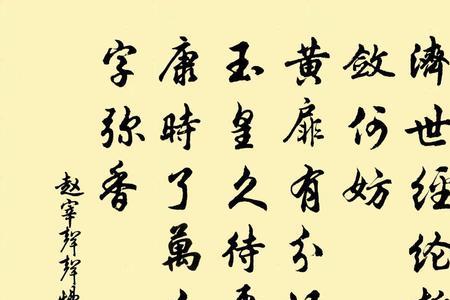 濟世經綸
斂何妨
黄扉有分
玉皇久待
康時了萬
字弥香
趙宰聲聲